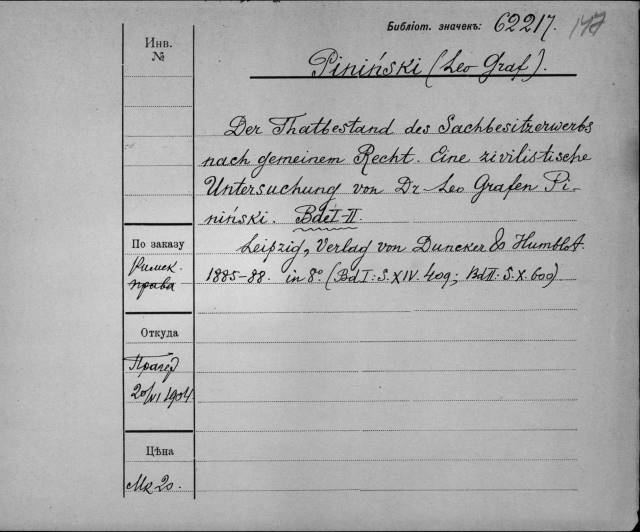 Библіот. значекъ: 62217. 147
Инв.
№
Piniński (Leo Graf).
Der Thatbestand des Sachbesitzerwerbs
nach gemeinem Recht. Eine zivilistische
Untersuchung von Dr Leo Grafen Pi-
niński. Bde I-II.
Leipzig, Verlag von Duncker & Humblot
1885-88. in 8º (Bd I: S. XIV. 409; Bd II: S. X. 600)
По заказу
Римск.
права
Откуда
20/VI 1904.
Цѣна
Mk 20.